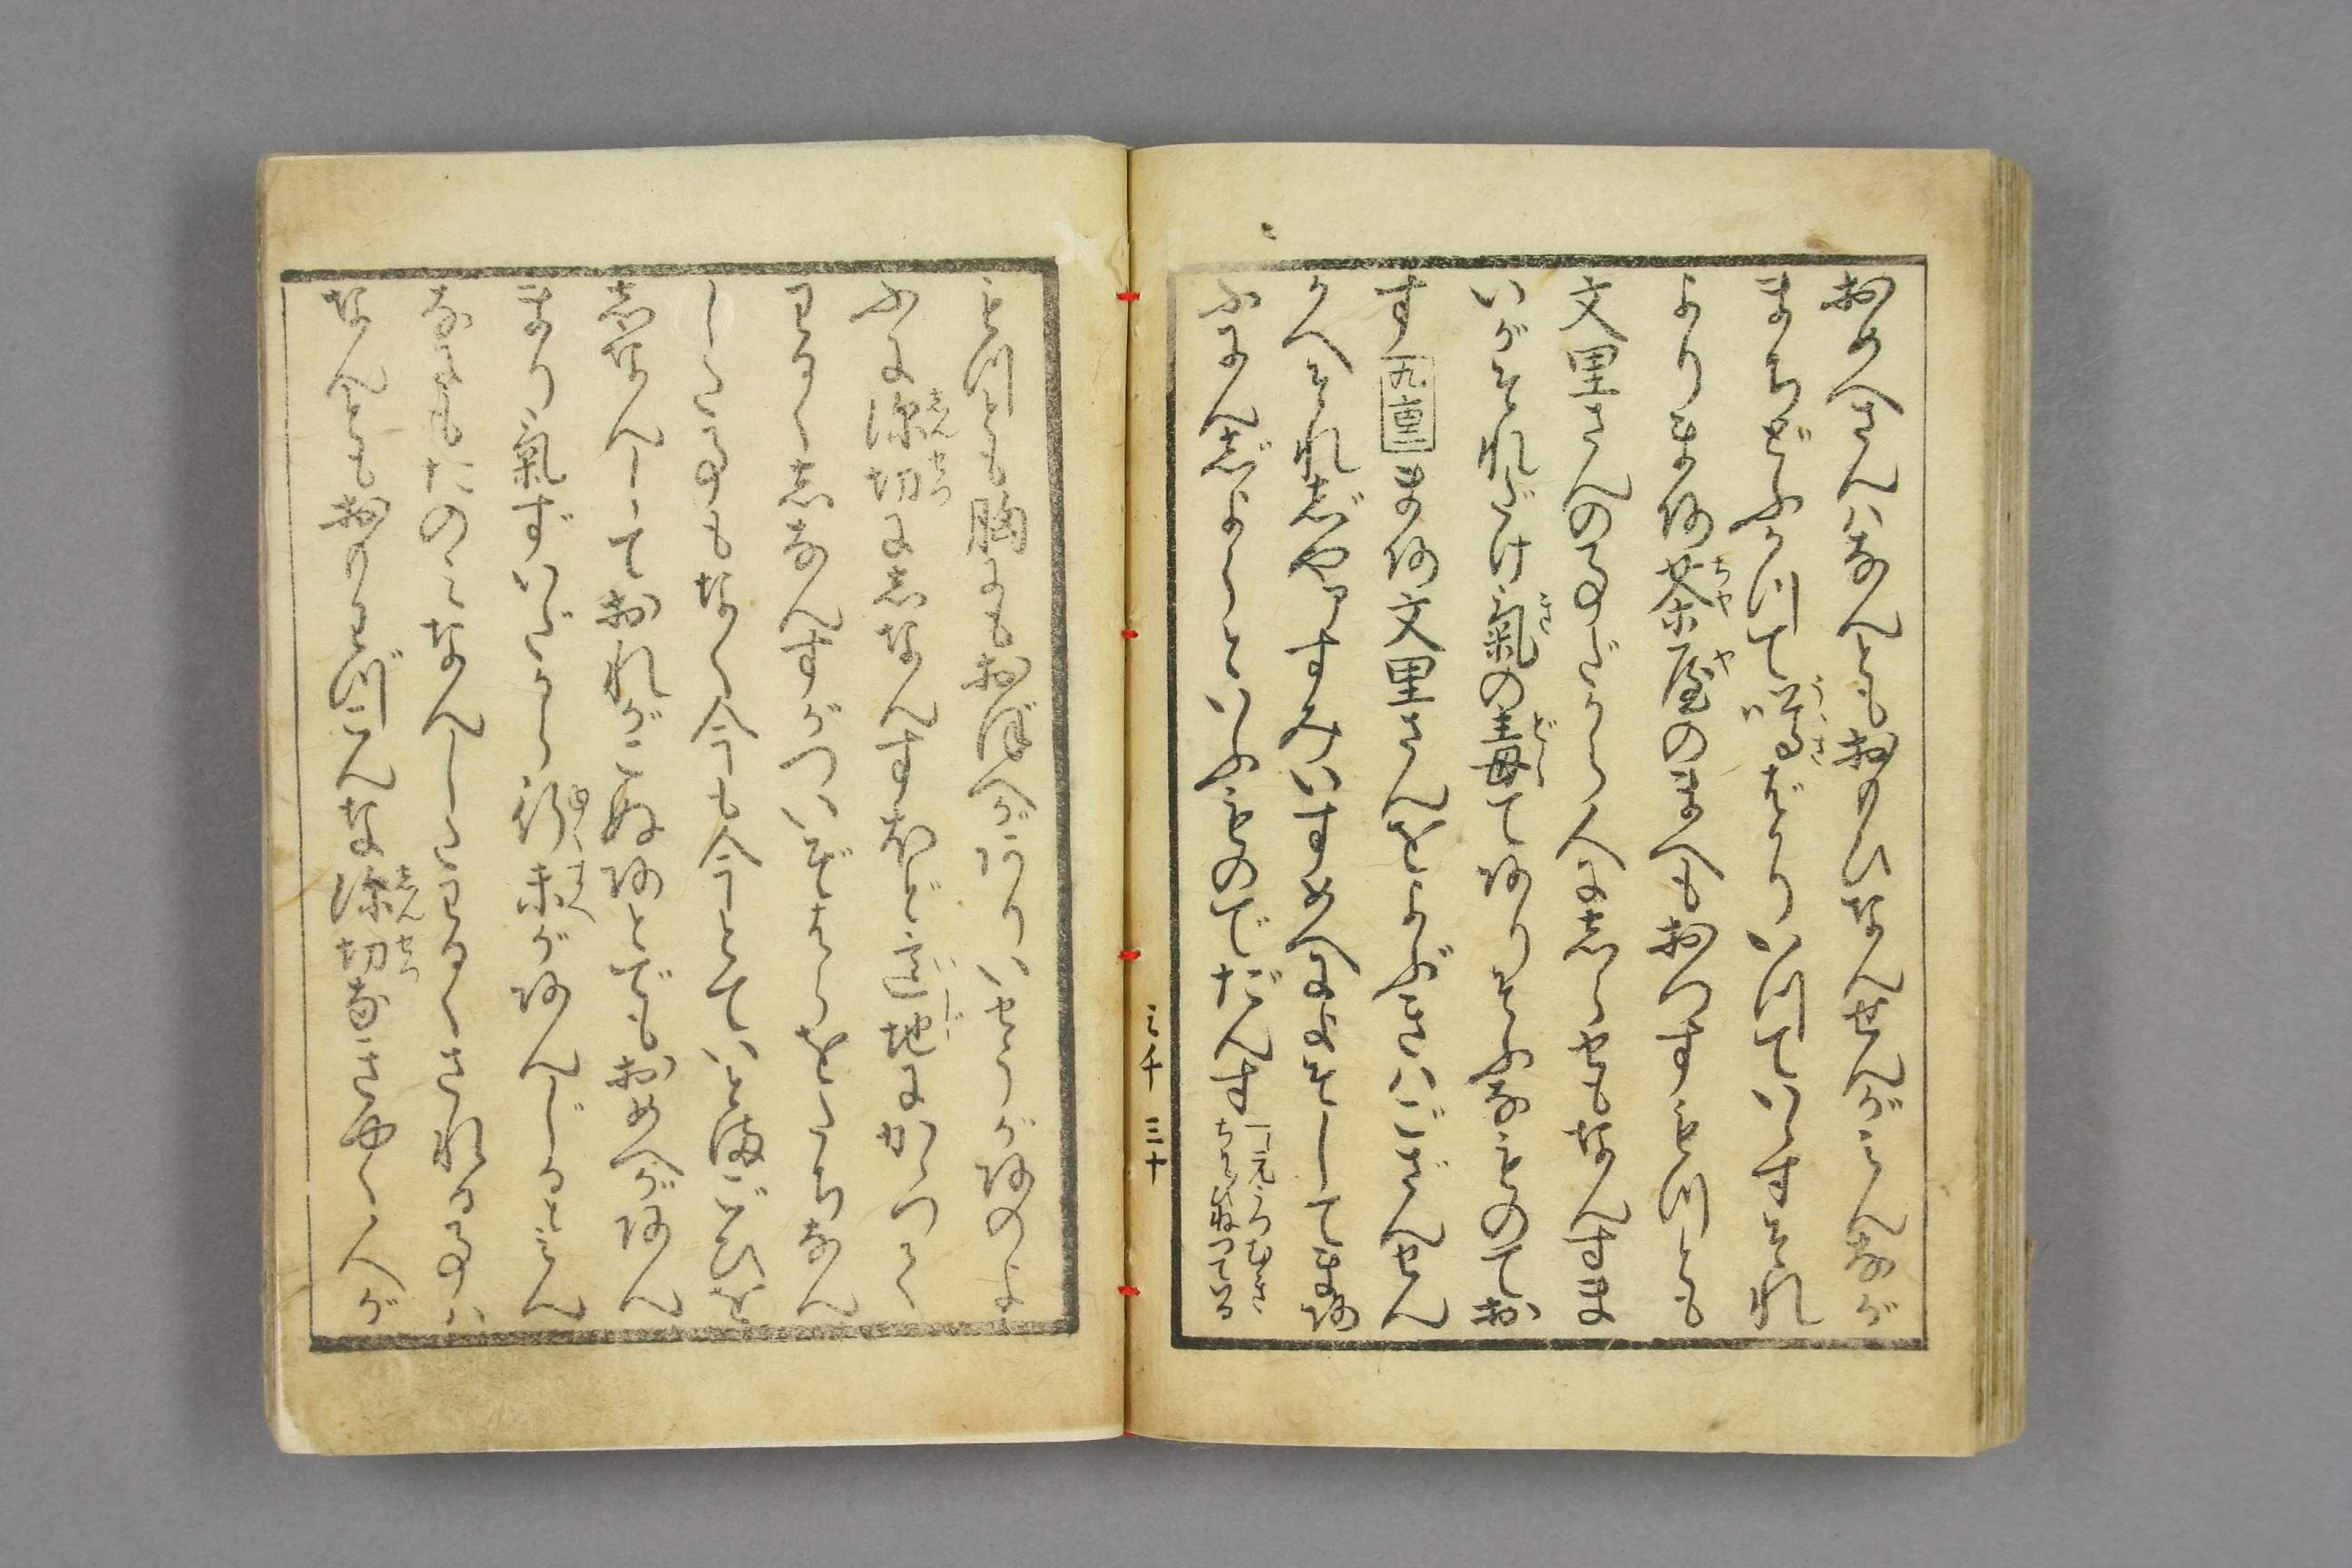 おめへさんはなんともおもひなせんがみんなが
まちどふがつて噂ばかりいつていすそれ
よりまア茶屋のまへもおつすもつとも
文里さんの事だから人にしらせもなんすま
いがそれだけ氣の毒でありそふなものでお
す 九重 まア文里さんをよぶきはござんせん
かへそれじやアすみいすめへによそしてまア
ふにんじよふといふものでだんす
もつとも胸にもおぼへがありいせうがあのよ
ふに深切にしなんすほど意地にかゝつて
わるくしなんすがついぞはらをたちなん
した事もなく今も今とていとまごひを
しなんしておれがこぬあとでもおめへがあん
まり氣ずいだから行末があんじるとさん
なにもたのみなんしたわるくされる事ハ
なんともおもわずにこんな深切なきやく人が
三千 三十